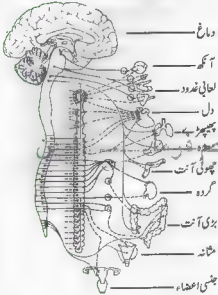 دماغ
آنکھ
لعابی غدود
دل
پھیپھڑے
معدہ
چھوٹی آنت
گردہ
بڑی آنت
مثانہ
جنسی اعضاء